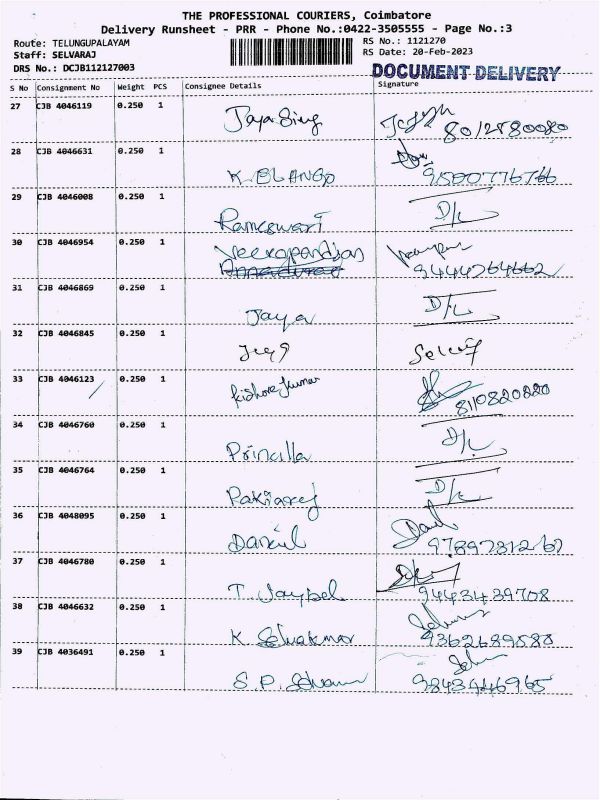 THE PROFESSIONAL COURIERS, Coimbatore
Delivery Runsheet - PRR - Phone No.:0422-3505555 - Page No.:3
Route: TELUNGUPALAYAM
RS No.: 1121270
Staff: SELVARAJ
RS Date: 20-Feb-2023
DRS No.: DCJB112127003
DOCUMENT DELIVERY
S No Consignment No Weight PCS Consignee Details Signature
27 CJB 4046119 0.250 1
Jaya Sing 8012580080
28 CJB 4046631 0.250 1
K. BLANGO 9500776766
29 CJB 4046008 0.250 1
Rameswari D/L
30 CJB 4046954 0.250 1
Veerapandian
9444264662
31 CJB 4046869 0.250 1
Jaya D/L
32 CJB 4046845 0.250 1
33 CJB 4046123 0.250 1
Kishore Kumar 8110820220
34 CJB 4046760 0.250 1
Princilla D/L
35 CJB 4046764 0.250 1
Pakiaraj D/L
36 CJB 4048095 0.250 1
Daniel
37 CJB 4046780 0.250 1
T. Jaypel 9443439708
38 CJB 4046632 0.250 1
K Selvakmar 9362689588
39 CJB 4036491 0.250 1
S.P. Selvam 9843446965